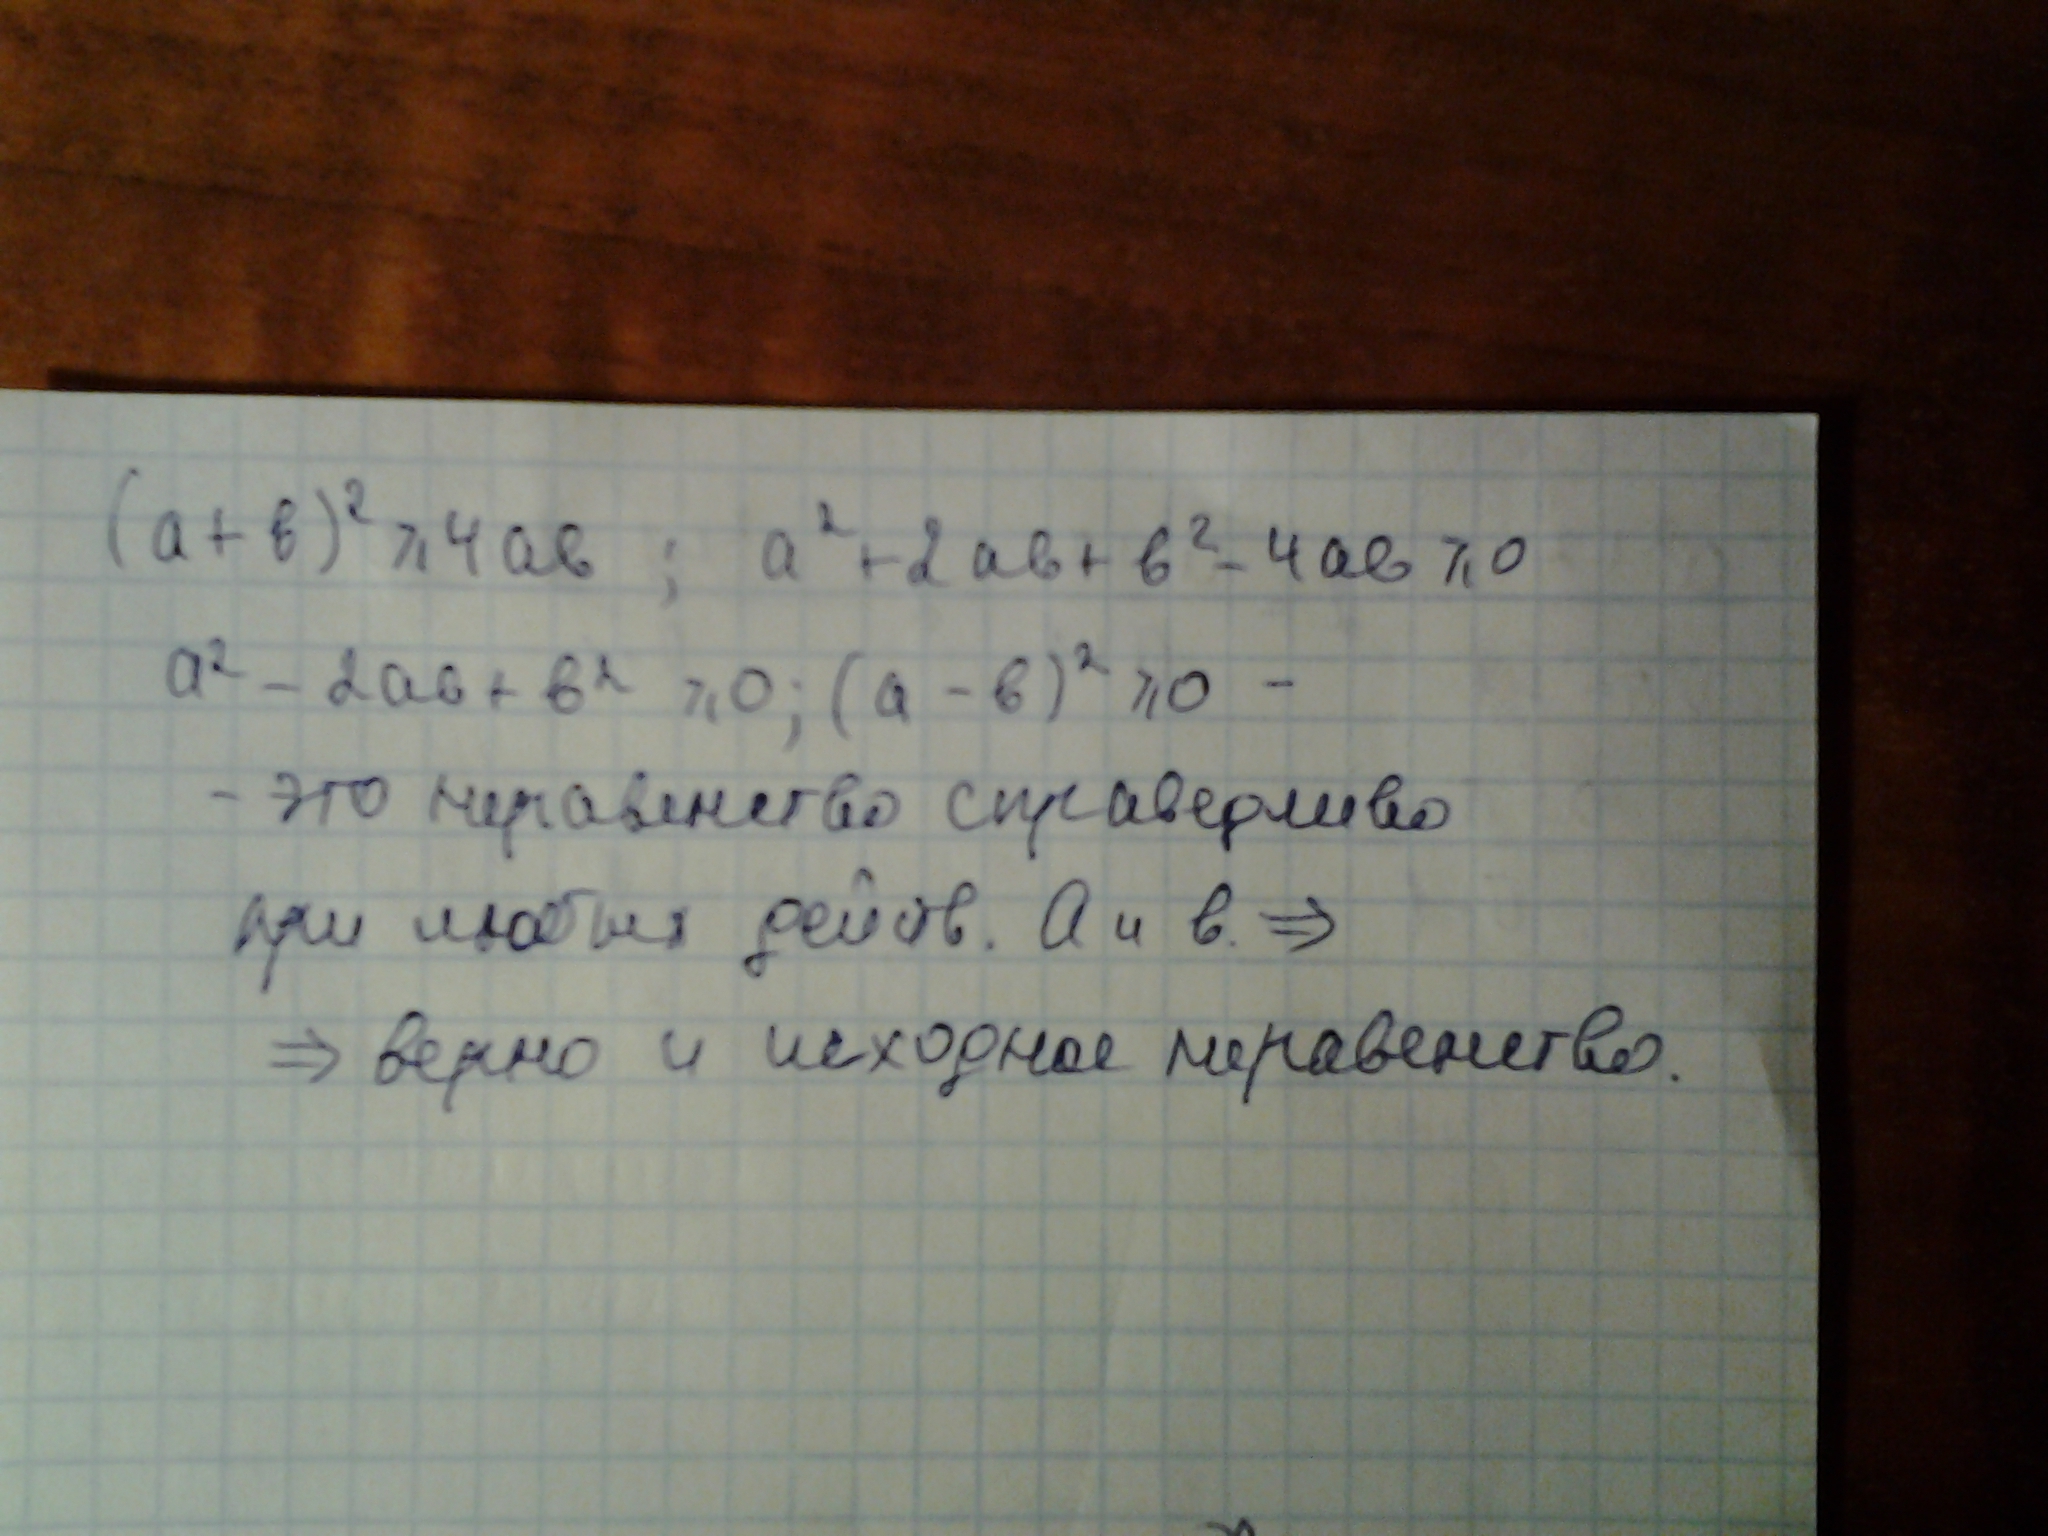 (а+в)² ⩾ 4ав ; а²+2ав+в²-4ав ⩾ 0
а² - 2ав + в² ⩾ 0; (а - в)² ⩾ 0 -
- это неравенство справедливо
при любых действ. а и в. ⇒
⇒ верно и исходное неравенство.